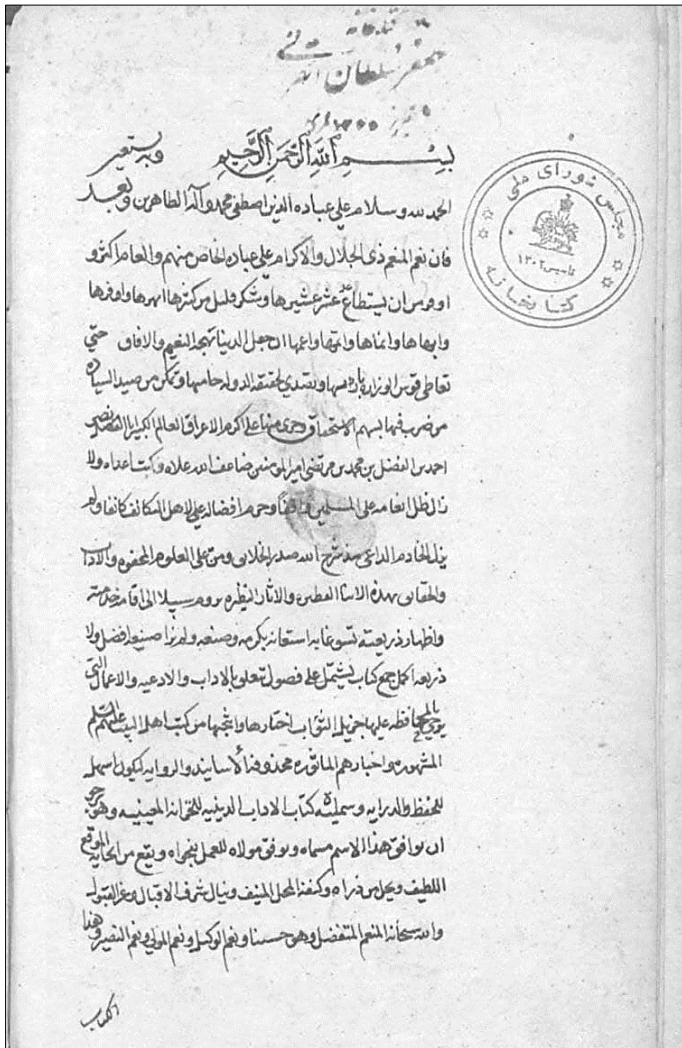 جعفر سلطان القرائی
تبریز
بسم الله الرحمن الرحیم وبه نستعین
الحمد لله وسلام علی عباده الذین اصطفی محمد وآله الطاهرین وبعد
فان نعم المنعم ذی الجلال والاکرام علی عباده الخاص منهم والعام اکثر و
اوفر من ان یستطاع عشر عشیرها وشکر قلیل من کثرها ابهرها واوفرها
وابهاها وانماها واتمها واعمها ان جعل الدنیا بهجة النعیم والافاق حتی
تعاطی قوس الوزارة باریها وتصدی لحقیقة الدولة حامیها وتمکن من صید السیادة
من ضرب فیها بسهم الاستحقاق وجری منها علی اکرم الاعراق العالم الکبیر نصیر
احمد بن الفضل بن محمد بن مرتضی امیرالمومنین ضاعف الله علاه وکبت اعداه ولا
زال ظل انعامه علی المسلمین وحرم افضاله علی الاهل ولم
یزل الخادم الداعی مذ شرح الله صدر ومن علی العلوم والاداب
والحقانی بهذه والاثار یروم سبیلا الی اقامة خدمته
واظهار ذریعته تسوغا به استعانة بکرمه وصنعه ولم یر صنیعا افضل ولا
ذریعة اکمل جمع کتاب یشتمل علی فصول تتعلق بالاداب والادعیه والاعمال التی
یرجی بالمحافظه علیها جزیل الثواب اختارها وانتخبها من کتب اهل البیت علیهم السلم
المشهوره واخبارهم الماثوره محذوفة الاسانید والروایه لیکون اسهل
للحفظ والدرایه وسمیته کتاب الاداب الدینیه للخزانة المعینیه وهو یرجو
ان یوافق هذا الاسم مسماه ویوفق مولاه للعمل بفحواه ویقع من الموقع
اللطیف ویحل من ذراه وکنفه المحل المنیف وینال شرف الاقبال وعز القبول
والله سبحانه المنعم المتفضل وهو حسبنا ونعم الوکیل ونعم المولی ونعم النصیر وهذا
الکتاب
مجلس شورای ملی
تاسیس ۱۳۰۲
کتابخانه